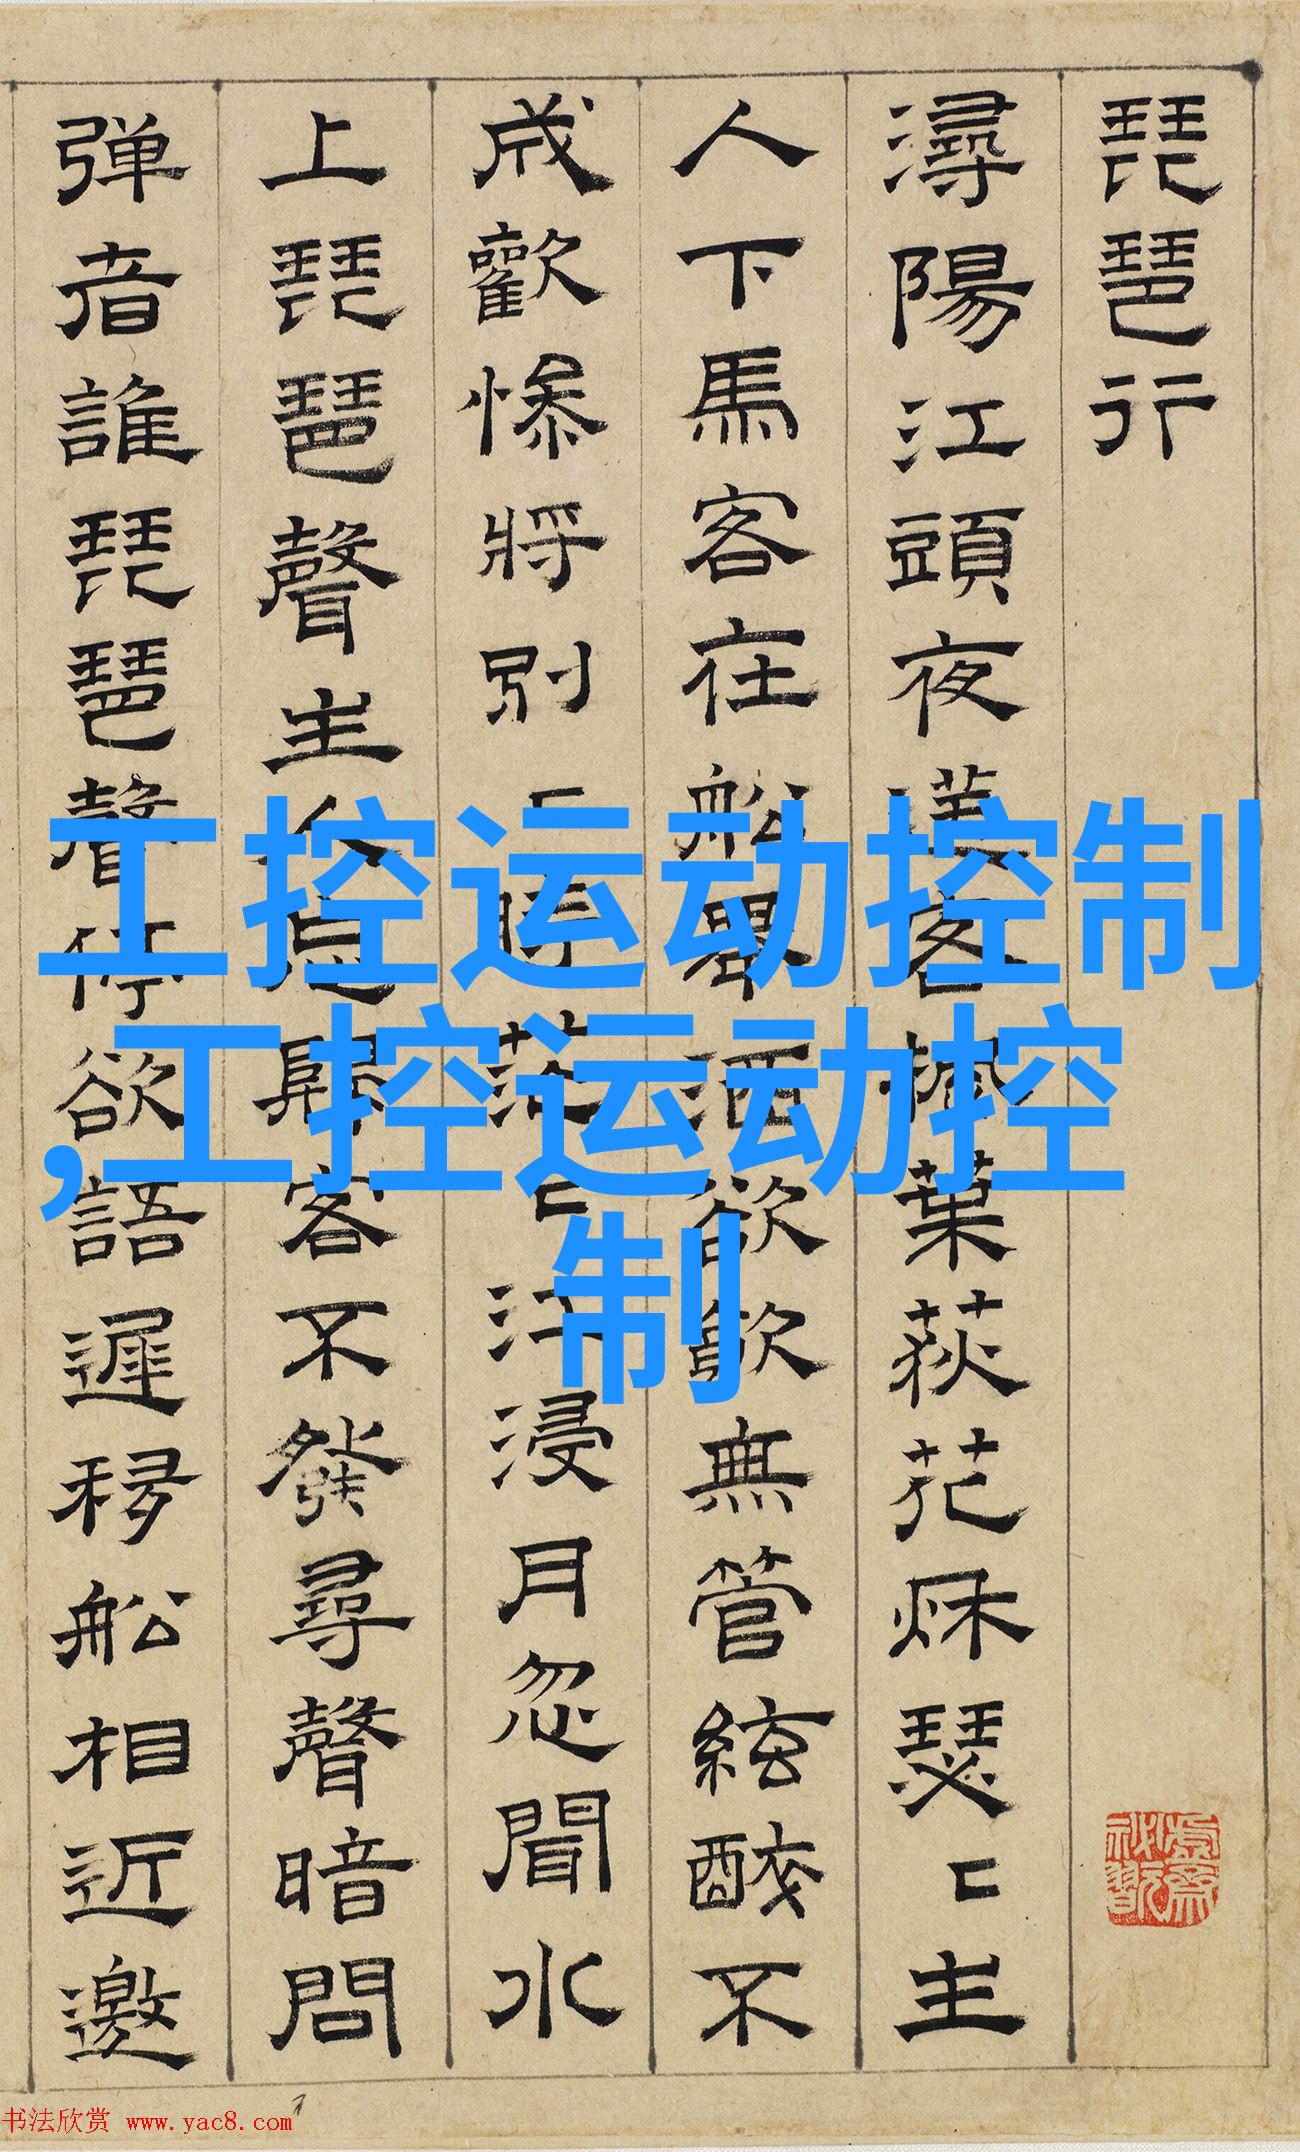 琵琶行
潯陽江頭夜送客楓葉荻花秋瑟〻主
人下馬客在船舉酒欲飲無管絃醉不
成歡慘將別別時茫〻江浸月忽聞水
上琵琶聲主人忘歸客不發尋聲暗問
弹者誰琵琶聲停欲語遲移船相近邀
工控运动控制
,工控运动控
制
书法欣赏 www.yac8.com